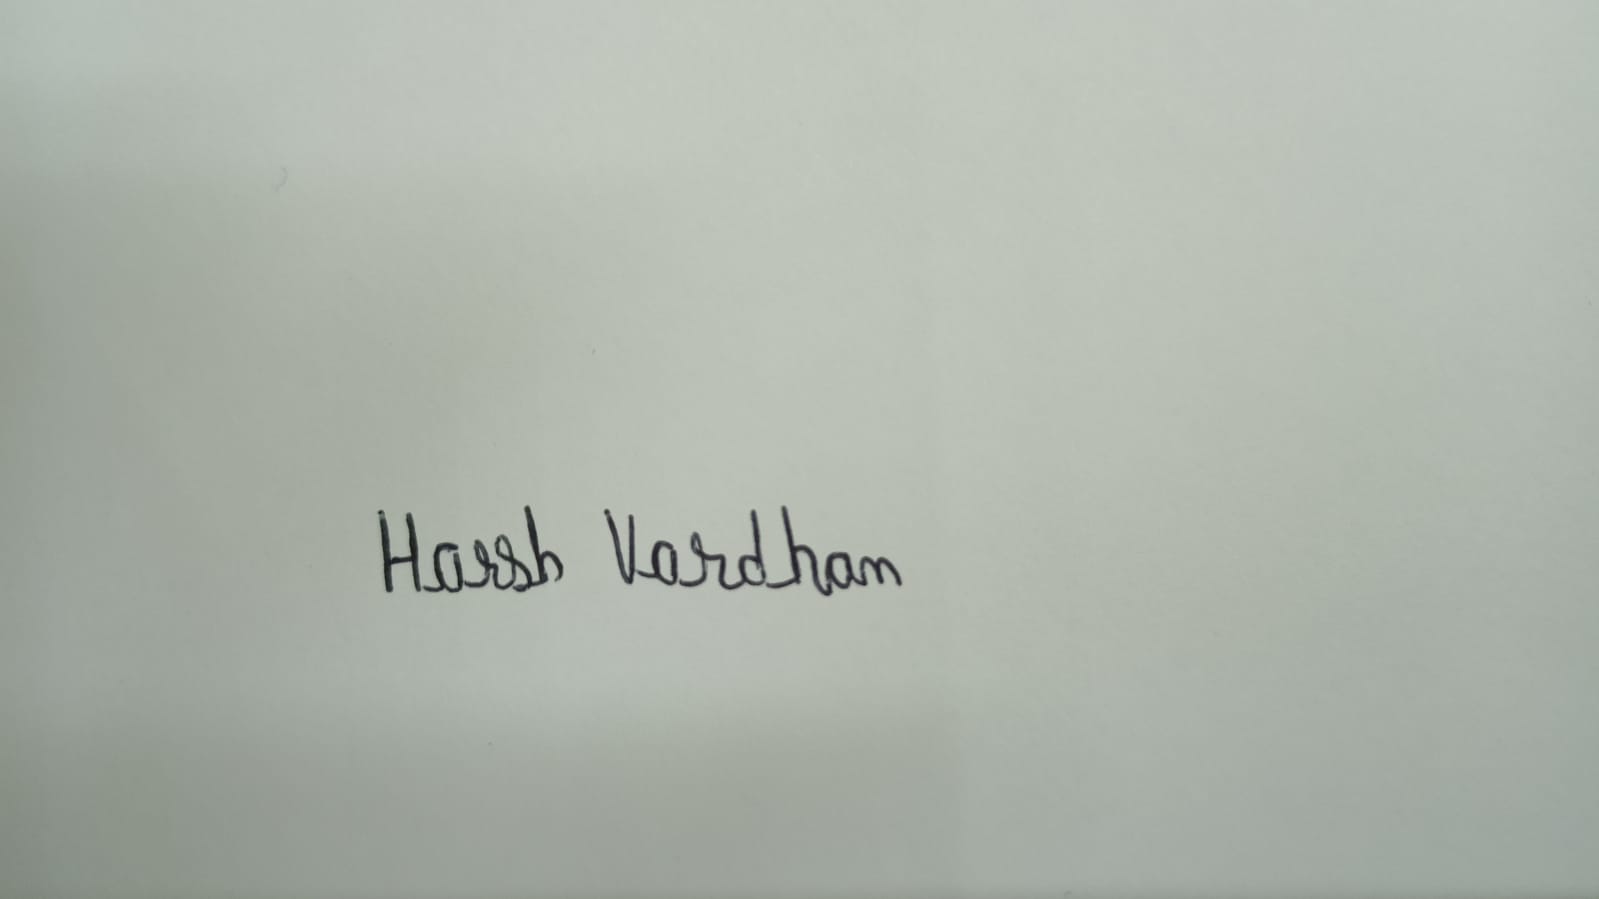 Harsh Vardhan